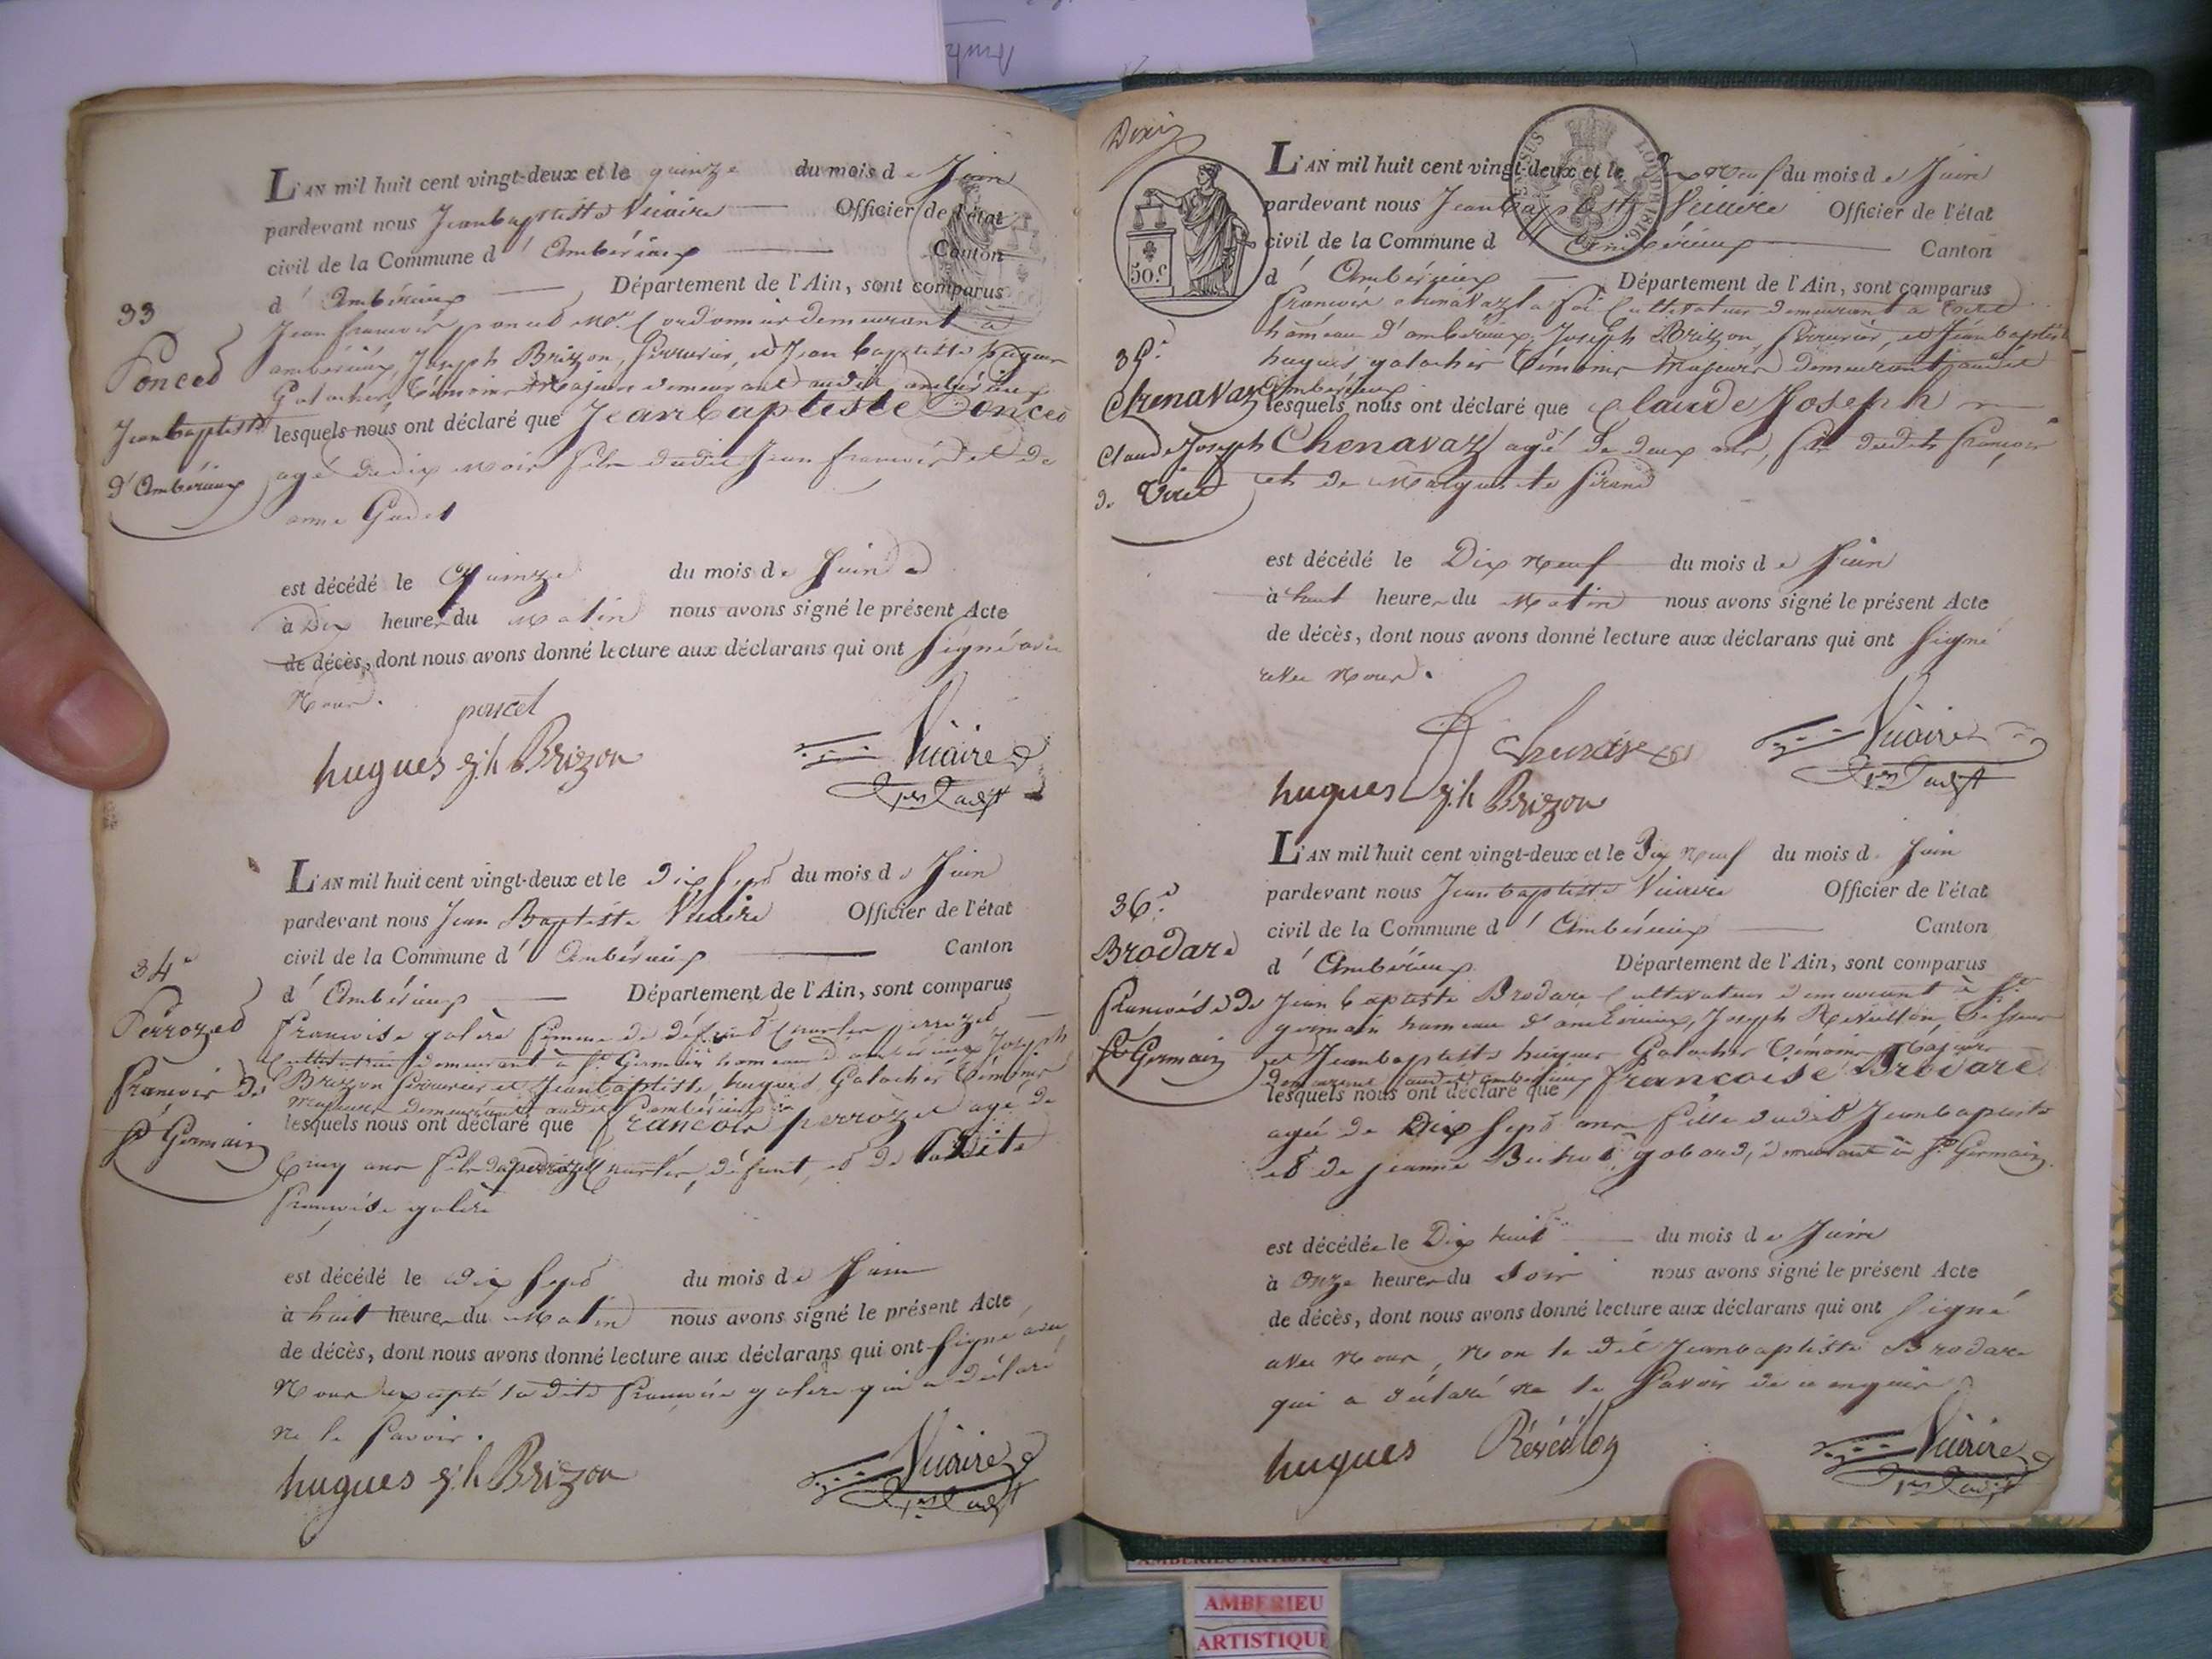 L'AN mil huit cent vingt-deux et le quinze du mois de Juin
pardevant nous Jeanbaptiste Vicaire Officier de l'état
civil de la Commune d' Ambérieux Canton
d' Ambérieux Département de l'Ain, sont comparus
Jean françois poncet Cordonnier demeurant a
ambérieux, Joseph Brizon, Serrurier, et Jean baptiste hugues
Galocher, témoins Majeurs demeurant audit ambérieux
lesquels nous ont déclaré que Jeanbaptiste Poncet
agé de dix mois fils dudit Jean françois et de
anne Gudet
33
Poncet
Jeanbaptiste
d'Ambérieux
est décédé le Quinze du mois de Juin
à Dix heures du Matin nous avons signé le présent Acte
de décès, dont nous avons donné lecture aux déclarans qui ont signé avec
Nous.
poncet
hugues jh Brizon Vicaire
L'AN mil huit cent vingt-deux et le dix sept du mois de Juin
pardevant nous Jean Baptiste Vicaire Officier de l'état
civil de la Commune d' Ambérieux Canton
d' Ambérieux Département de l'Ain, sont comparus
françoise galère femme de défunt Charles perrozet
Cultivatrice demeurant à St Germain hameau d'ambérieux, Joseph
Brizon serrurier et Jeanbaptiste hugues Galocher témoins
Majeurs demeurant audit ambérieux
lesquels nous ont déclaré que francois perrozet agé de
Cinq ans fils de Charles, défunt, et de ladite
françoise galère
34e
Perrozet
françois de
St Germain
est décédé le Dix sept du mois de Juin
à huit heures du Matin nous avons signé le présent Acte
de décès, dont nous avons donné lecture aux déclarans qui ont signé avec
Nous excepté la dite françoise galère qui a déclaré
ne le savoir.
hugues jh Brizon Vicaire
50 c
LOI DE 1816
L'AN mil huit cent vingt-deux et le Dix Neuf du mois de Juin
pardevant nous Jeanbaptiste Vicaire Officier de l'état
civil de la Commune d' Ambérieux Canton
d' Ambérieux Département de l'Ain, sont comparus
françois chenavaz Cultivateur demeurant à Tiret
hameau d'ambérieux, Joseph Brizon, serrurier, et Jeanbaptiste
hugues galocher témoins Majeurs demeurant audit
ambérieux
lesquels nous ont déclaré que Claude Joseph
Chenavaz agé de deux ans, fils dudit françois
et de Marguerite
35e
Chenavaz
Claude Joseph
de Tiret
est décédé le Dix Neuf du mois de Juin
à huit heures du Matin nous avons signé le présent Acte
de décès, dont nous avons donné lecture aux déclarans qui ont signé
avec Nous.
Vicaire
hugues jh Brizon
L'AN mil huit cent vingt-deux et le Dix Neuf du mois de Juin
pardevant nous Jeanbaptiste Vicaire Officier de l'état
civil de la Commune d' Ambérieux Canton
d' Ambérieux Département de l'Ain, sont comparus
Jean baptiste Brodare Cultivateur demeurant à St
germain hameau d'ambérieux, Joseph Revéillon,
et Jeanbaptiste hugues Galocher témoins Majeurs
demeurant audit ambérieux francoise Brodare
lesquels nous ont déclaré que
agée de Dix sept ans fille dudit Jeanbaptiste
et de jeanne demeurant à St Germain
36e
Brodare
françoise de
St Germain
est décédée le Dix huit du mois de Juin
à Onze heures du Soir nous avons signé le présent Acte
de décès, dont nous avons donné lecture aux déclarans qui ont signé
avec Nous, Non le dit Jeanbaptiste Brodare
qui a déclaré ne le savoir de ce enquis
hugues Révéillon Vicaire
AMBERIEU ARTISTIQUE
AMBERIEU
ARTISTIQUE